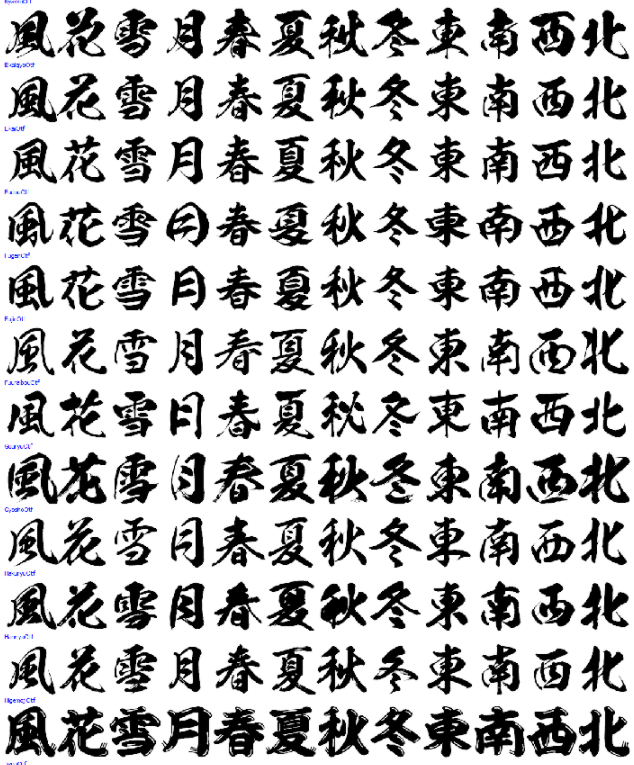 風花雪月春夏秋冬東南西北
EikaigyoOtf
風花雪月春夏秋冬東南西北
風花雪月春夏秋冬東南西北
風花雪月春夏秋冬東南西北
FugenOtf
風花雪月春夏秋冬東南西北
風花雪月春夏秋冬東南西北
風花雪月春夏秋冬東南西北
風花雪月春夏秋冬東南西北
GyoshoOtf
風花雪月春夏秋冬東南西北
HakuryuOtf
風花雪月春夏秋冬東南西北
風花雪月春夏秋冬東南西北
HigemojiOtf
風花雪月春夏秋冬東南西北